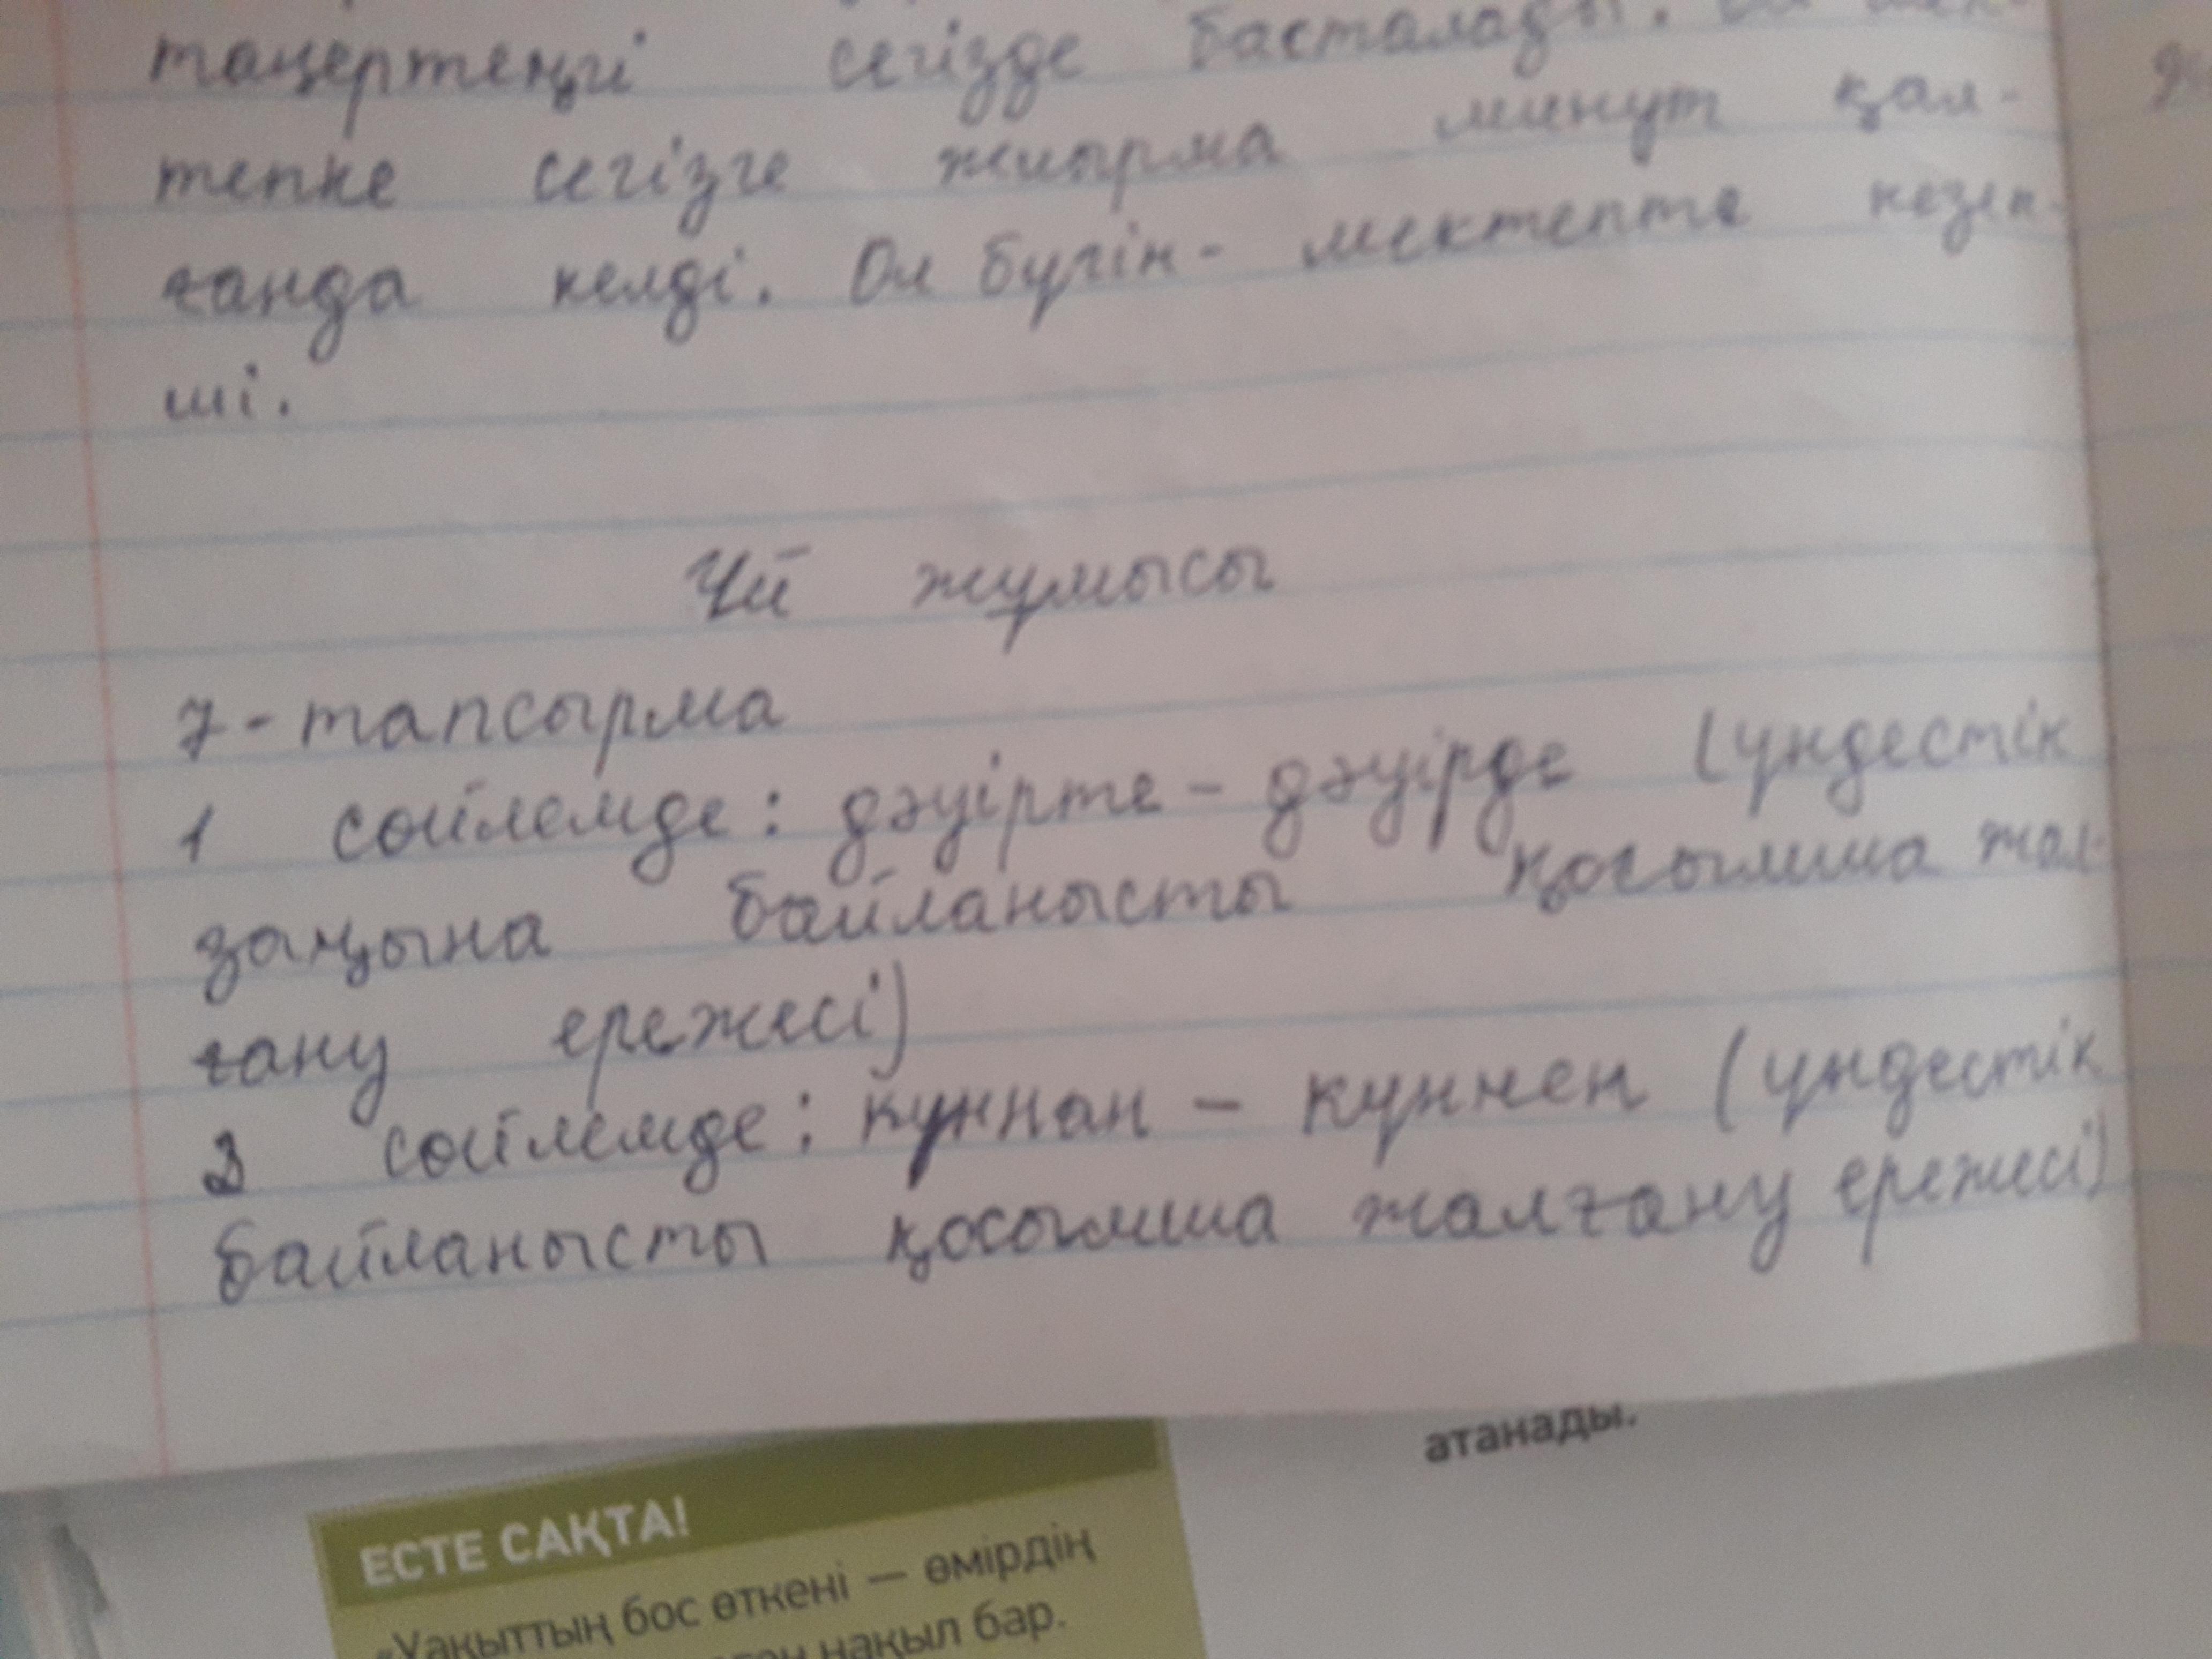 таңертеңгі сегізде басталады.
тепке сегізге жиырма минут қал-
ғанда келді. Ол бүгін- мектепте кезек-
ші.
Үй жұмысы
7-тапсырма
1 сөйлемде: дәуірте - дәуірде (үндестік
заңына байланысты қосымша жал-
ғану ережесі)
3 сөйлемде: күннан - күннен (үндестік
байланысты қосымша жалғану ережесі)
атанады.
ЕСТЕ САҚТА!
«Уақыттың бос өткені — өмірдің
нақыл бар.